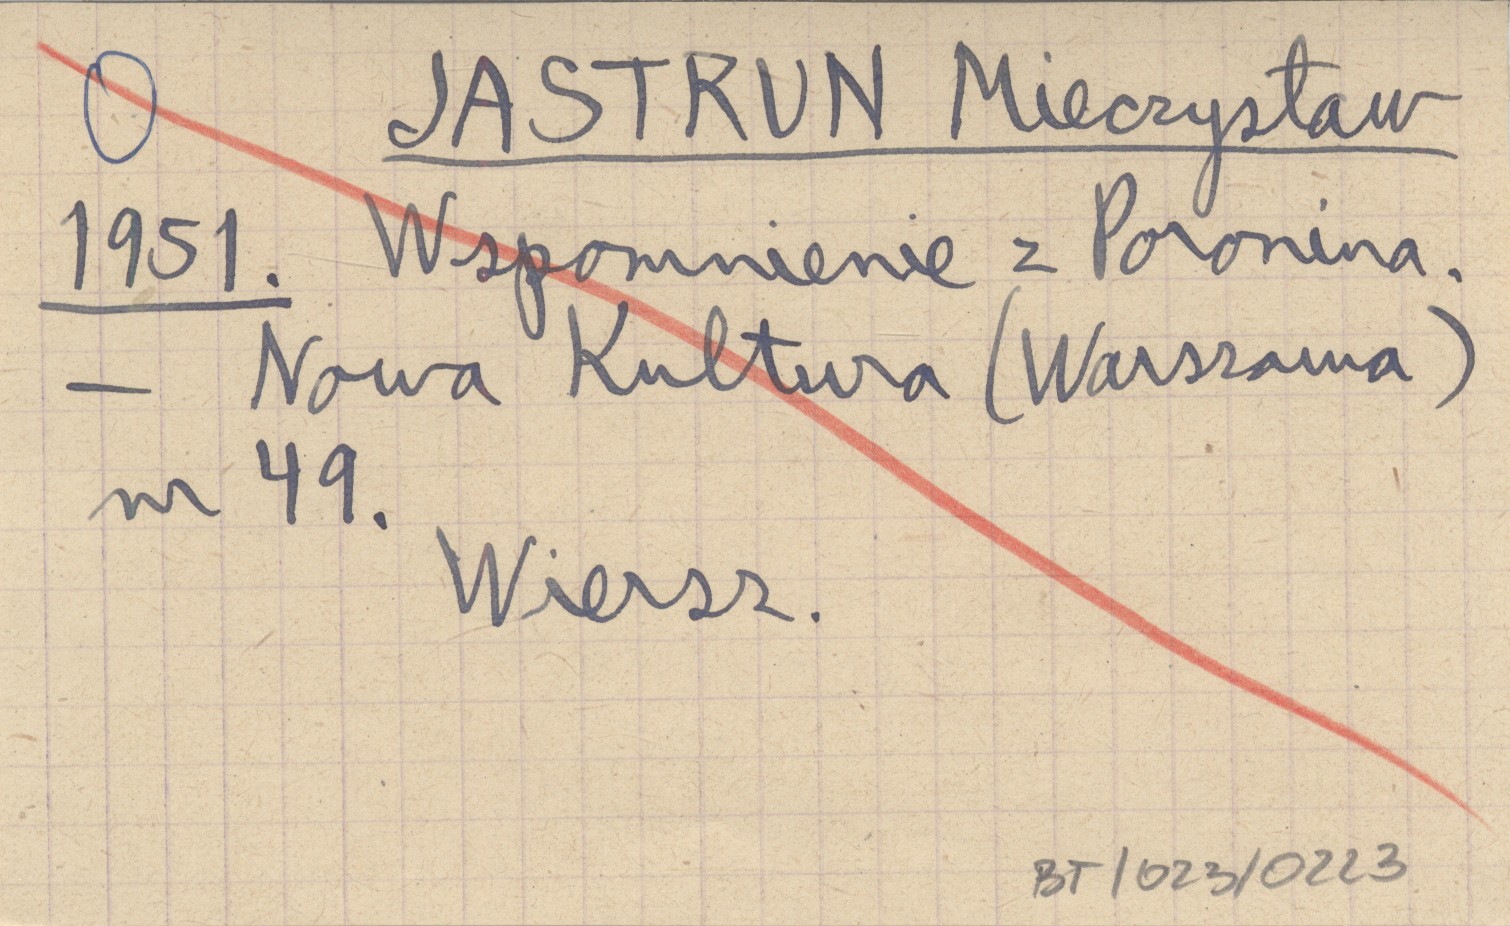 0 JASTRUN Mieczysław
1951. Wspomnienie z Poronina.
— Nowa Kultura (Warszawa)
nr 49.
Wiersz.
BT/023/0223